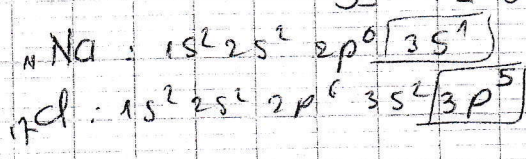 ₁₁Na : 1s² 2s² 2p⁶ 3s¹
₁₇Cl : 1s² 2s² 2p⁶ 3s² 3p⁵